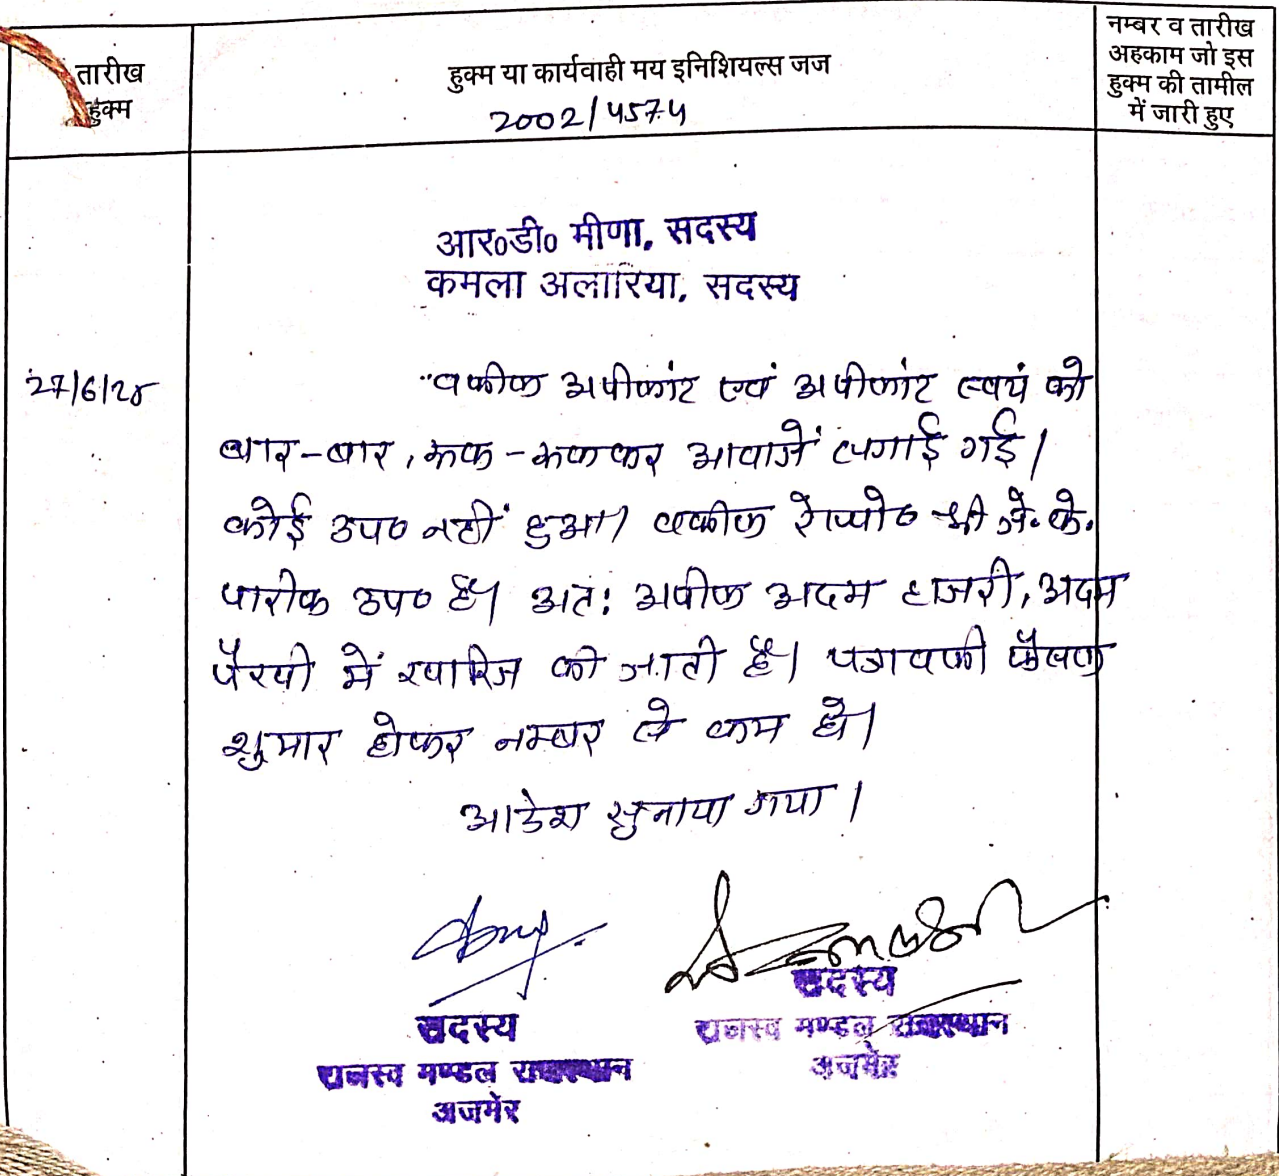 तारीख
हुक्म
हुक्म या कार्यवाही मय इनिशियल्स जज
2002/4574
नम्बर व तारीख
अहकाम जो इस
हुक्म की तामील
में जारी हुए
आर०डी० मीणा, सदस्य
कमला अलारिया, सदस्य
27/6/25
वकील अपीलांट एवं अपीलांट स्वयं को
बार-बार, रूक-रूककर आवाजें लगाई गई।
कोई उप० नहीं हुआ। वकील रेस्पो० श्री जे. के.
पारीक उप० है। अतः अपील अदम हाजरी, अदम
पैरवी में खारिज की जाती है। पत्रावली फैसल
शुमार होकर नम्बर से कम हो।
आदेश सुनाया गया।
सदस्य
राजस्व मण्डल राजस्थान
अजमेर
सदस्य
राजस्व मण्डल राजस्थान
अजमेर